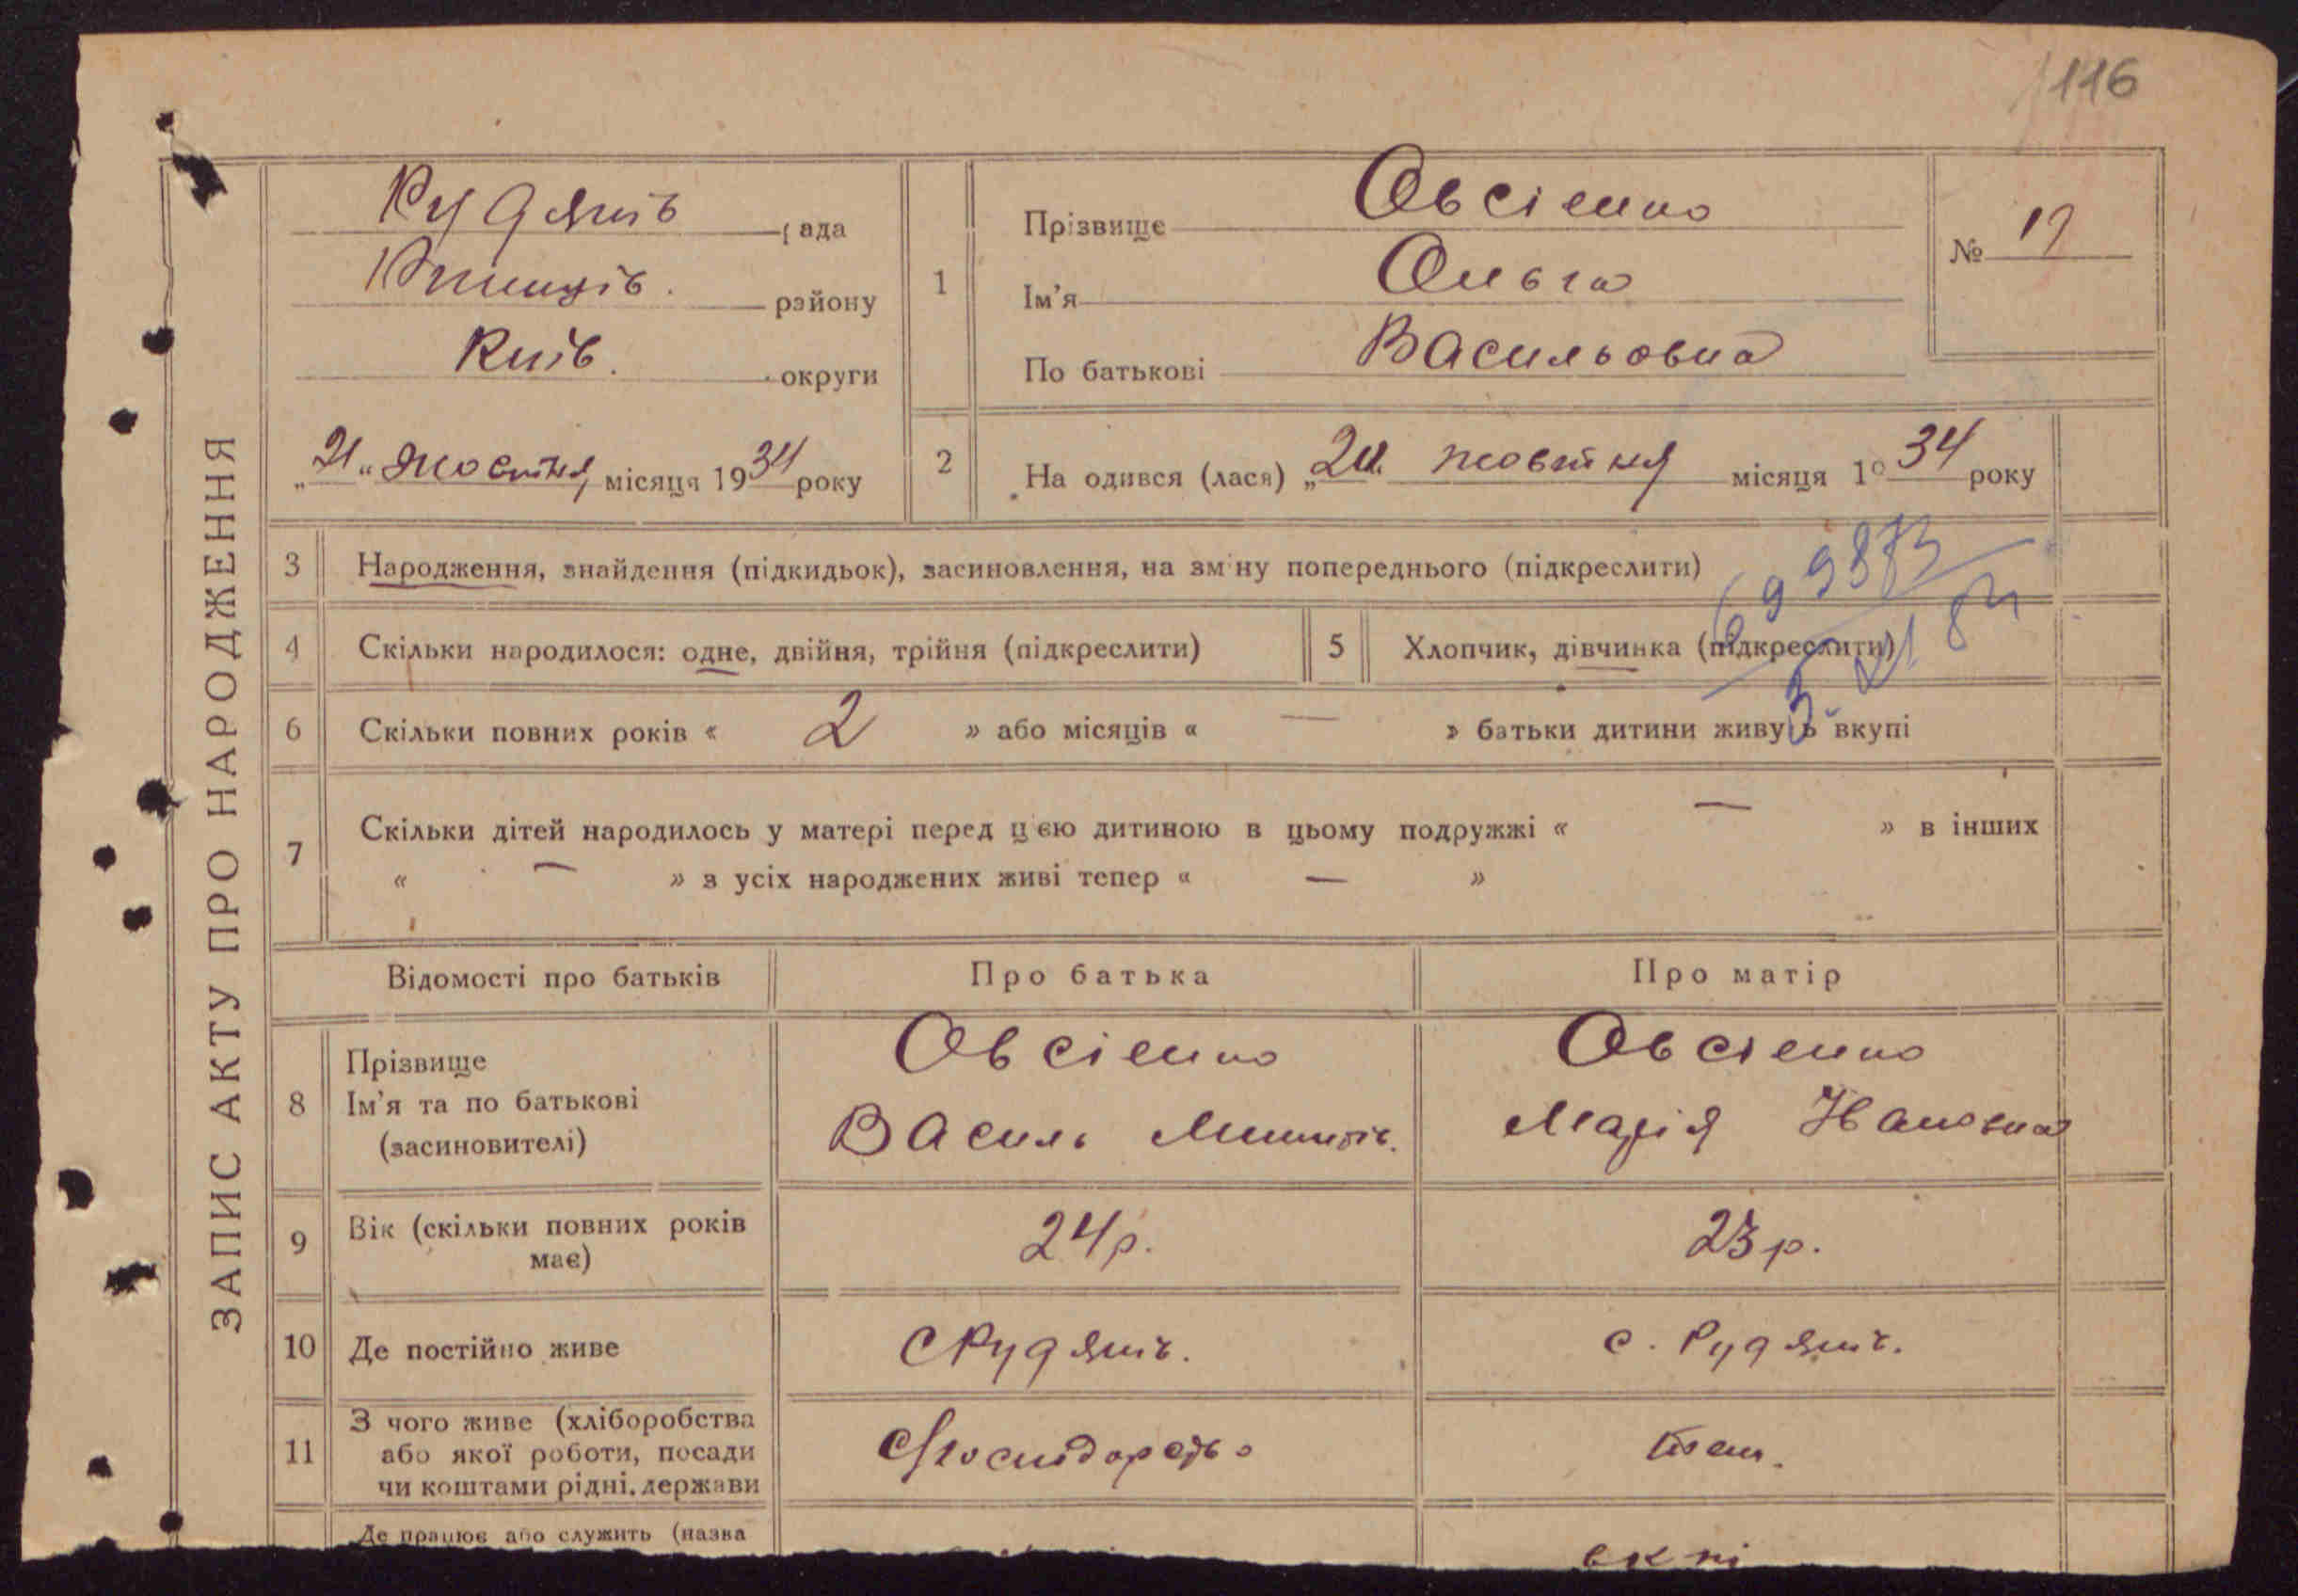 116
ЗАПИС АКТУ ПРО НАРОДЖЕННЯ
Рудяків рада
району
Київ. округи
„21“ жовтня місяця 1934 року
1
Прізвище Овсієнко
Ім'я Ольга
По батькові Васильовна
№ 19
2
На одився (лася) „ жовтня місяця 19 34 року
3 Народження, знайдення (підкидьок), засиновлення, на зміну попереднього (підкреслити)
4 Скільки народилося: одне, двійня, трійня (підкреслити)
5 Хлопчик, дівчинка (підкреслити)
6 Скільки повних років « 2 » або місяців « — » батьки дитини живуть вкупі
7 Скільки дітей народилось у матері перед цією дитиною в цьому подружжі « — » в інших
« — » з усіх народжених живі тепер « — »
Відомості про батьків Про батька Про матір
8 Прізвище
Ім'я та по батькові
(засиновителі)
Овсієнко
Василь
Овсієнко
Марія Івановна
9 Вік (скільки повних років
має)
24 р. 23 р.
10 Де постійно живе с Рудяків. с. Рудяків.
11 З чого живе (хліборобства
або якої роботи, посади
чи коштами рідні, держави
Де працює або служить (назва